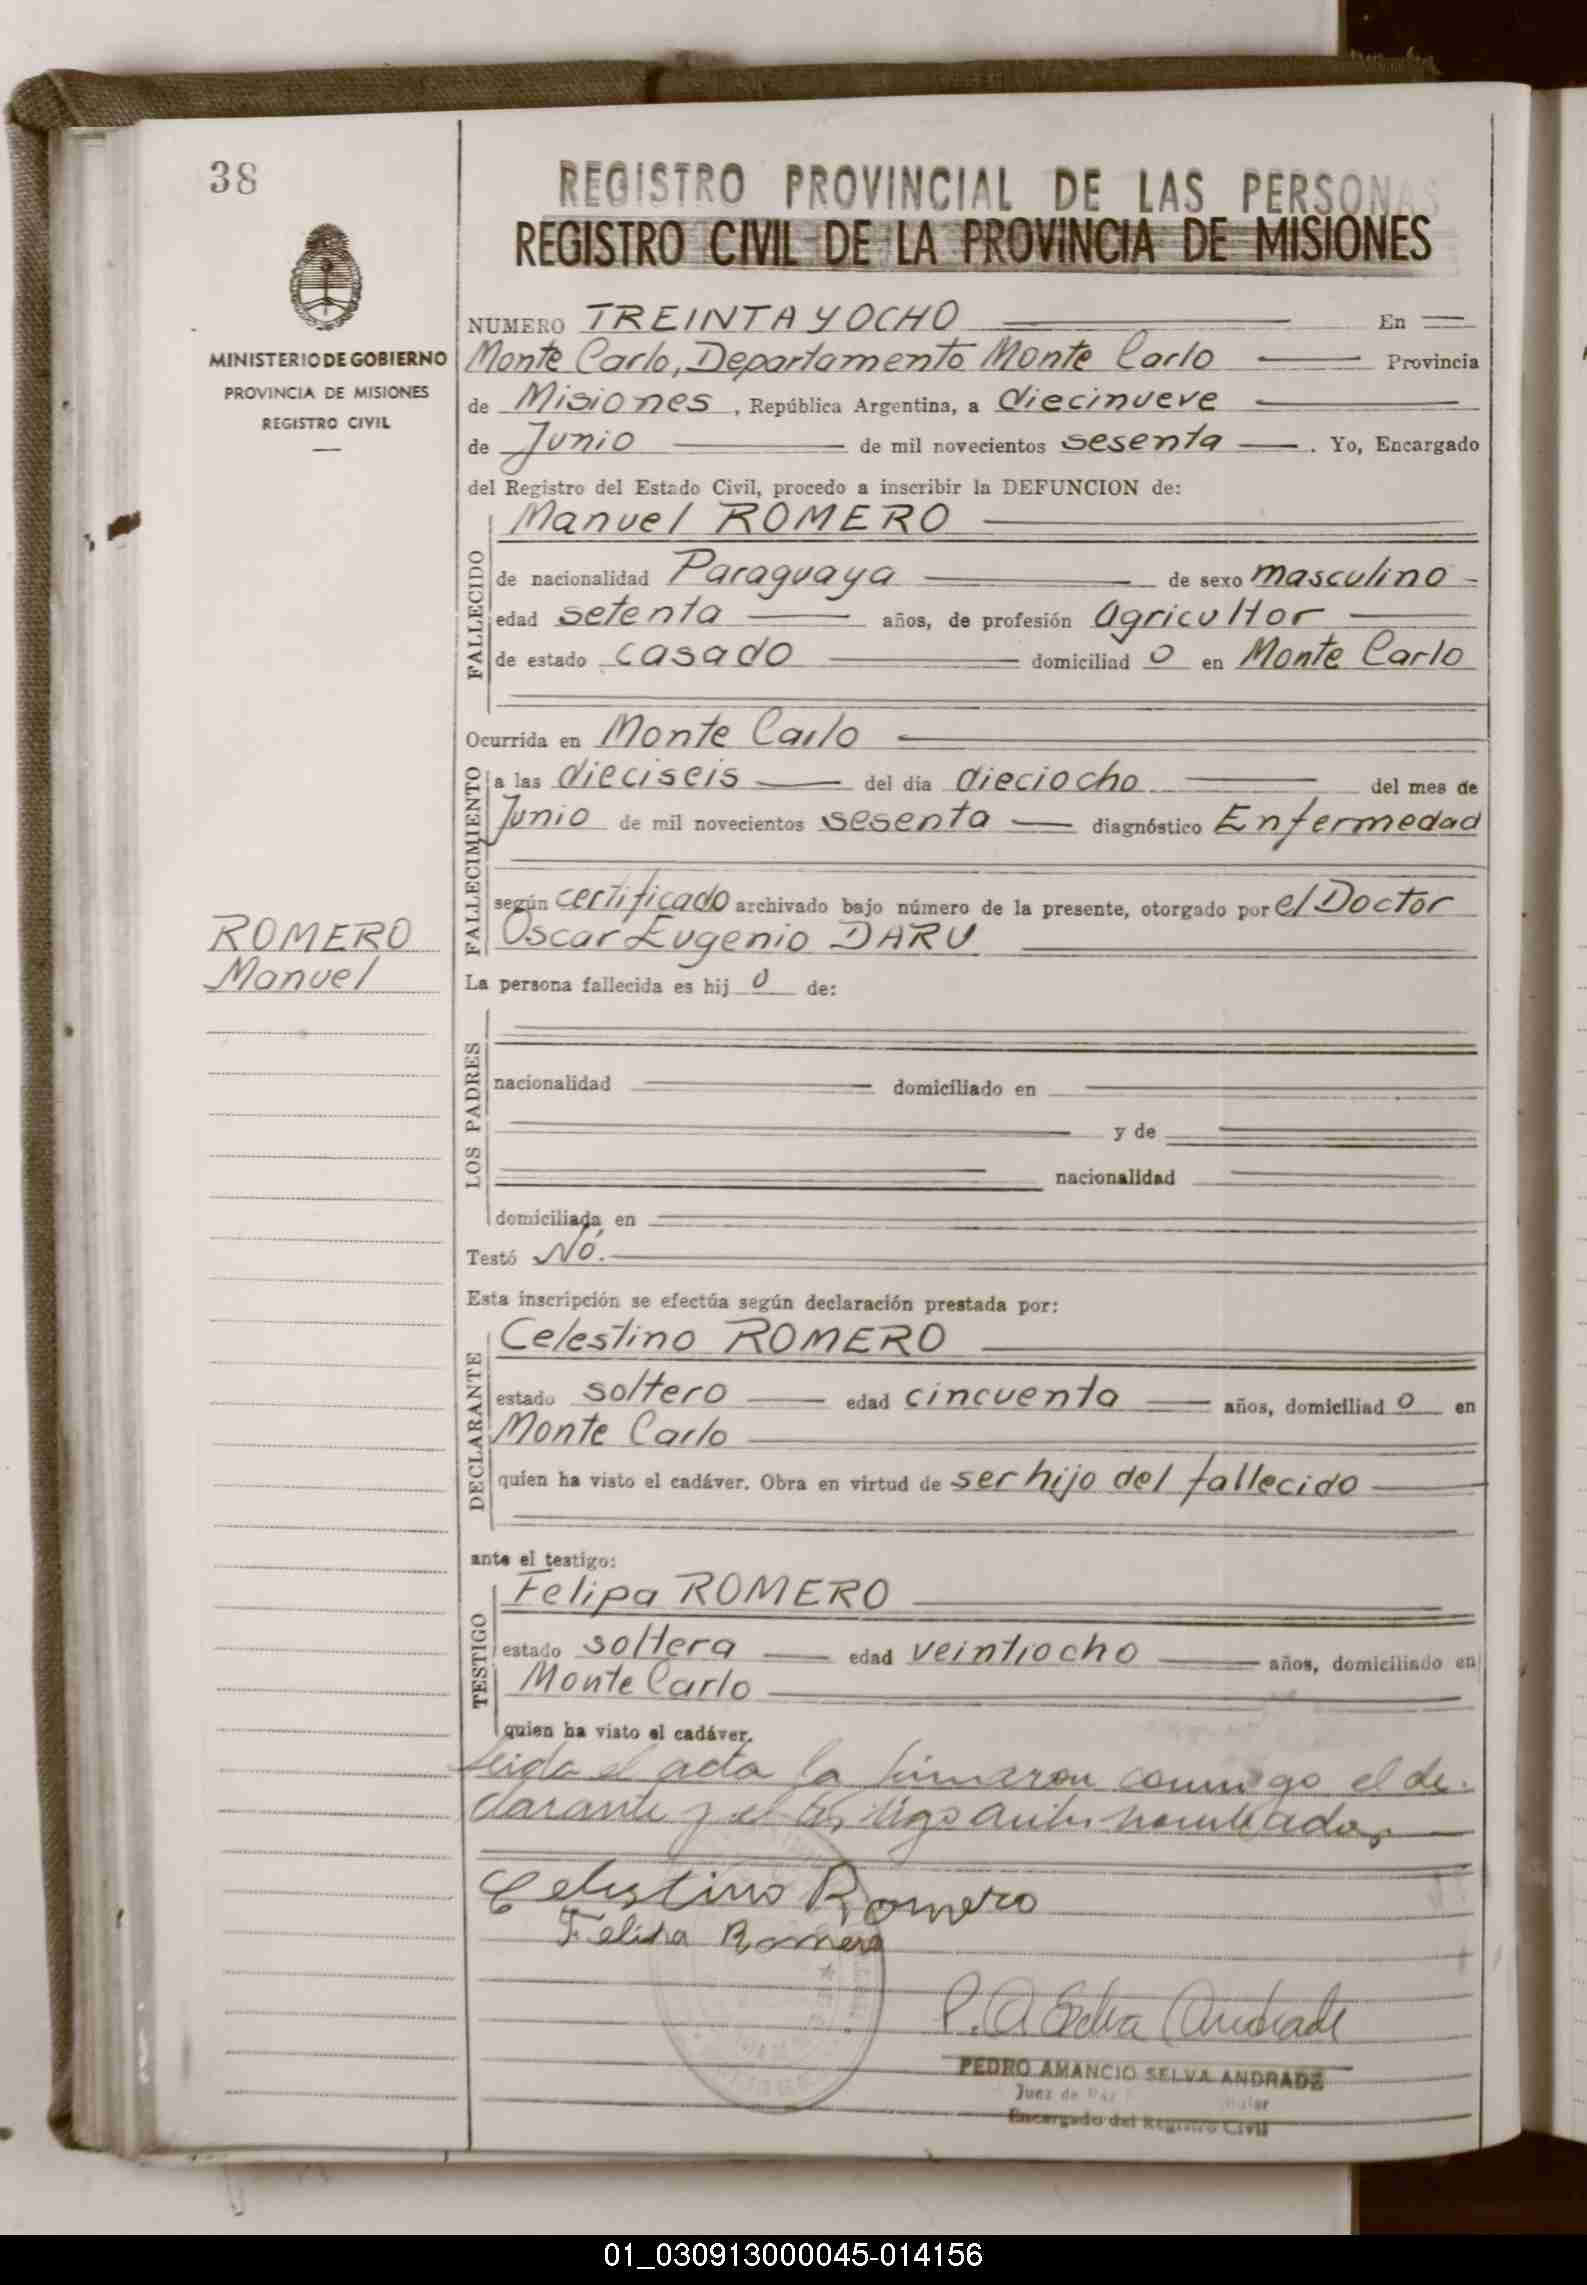 38
REGISTRO PROVINCIAL DE LAS PERSONAS
REGISTRO CIVIL DE LA PROVINCIA DE MISIONES
MINISTERIO DE GOBIERNO
PROVINCIA DE MISIONES
REGISTRO CIVIL
NUMERO TREINTA Y OCHO En
Monte Carlo, Departamento Monte Carlo Provincia
de Misiones, República Argentina, a diecinueve
de Junio de mil novecientos sesenta. Yo, Encargado
del Registro del Estado Civil, procedo a inscribir la DEFUNCION de:
FALLECIDO
Manuel ROMERO
de nacionalidad Paraguaya de sexo masculino
edad setenta años, de profesión agricultor
de estado casado domiciliad o en Monte Carlo
Ocurrida en Monte Carlo
FALLECIMIENTO
a las dieciseis del día dieciocho del mes de
Junio de mil novecientos sesenta diagnóstico Enfermedad
según certificado archivado bajo número de la presente, otorgado por el Doctor
Oscar Eugenio DARU
ROMERO
Manuel
La persona fallecida es hij o de:
LOS PADRES
nacionalidad domiciliado en
y de
nacionalidad
domiciliada en
Testó No.
Esta inscripción se efectúa según declaración prestada por:
DECLARANTE
Celestino ROMERO
estado soltero edad cincuenta años, domiciliad o en
Monte Carlo
quien ha visto el cadáver. Obra en virtud de ser hijo del fallecido
ante el testigo:
TESTIGO
Felipa ROMERO
estado soltera edad veintiocho años, domiciliado en
Monte Carlo
quien ha visto el cadáver.
Leida el acta la firmaron conmigo el de-
clarante y el testigo antes nombrados
Celestino Romero
Felipa Romero
P. A. Selva Andrade
PEDRO AMANCIO SELVA ANDRADE
Juez de Paz
Encargado del Registro Civil
01_030913000045-014156